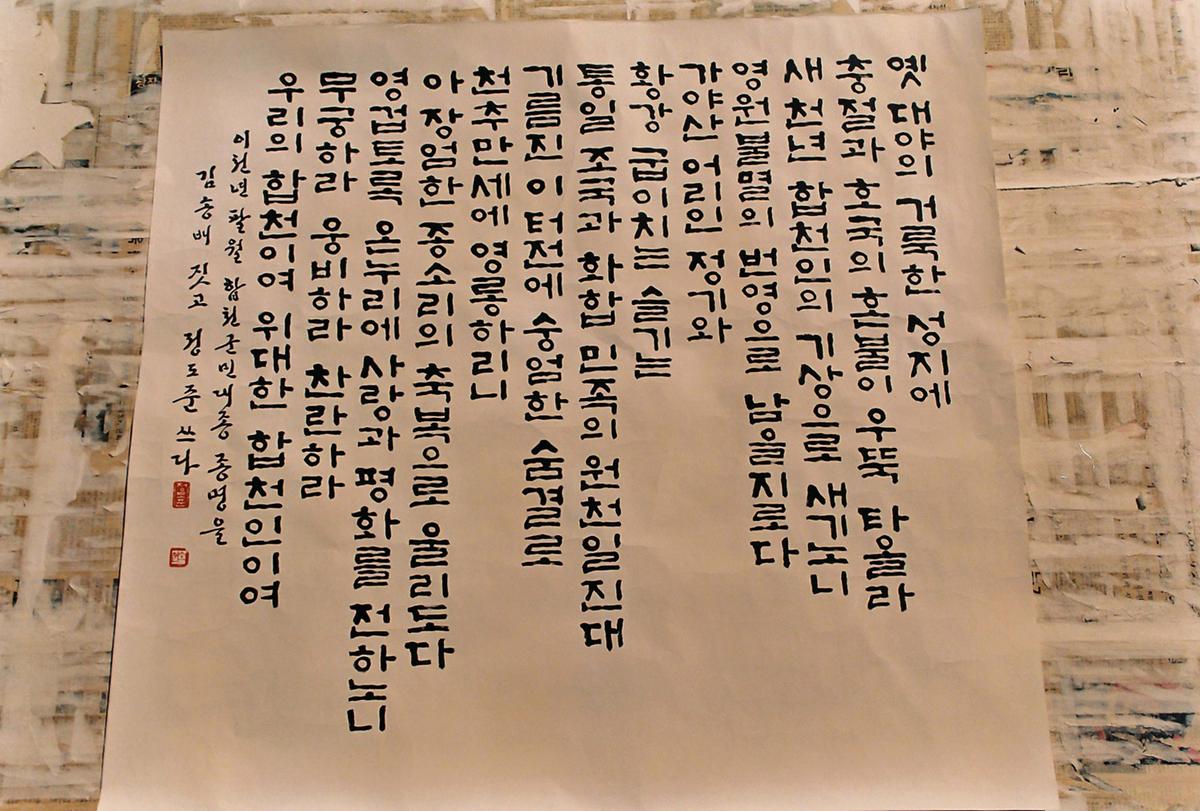 옛 대야의 거룩한 성지에
충절과 호국의 혼불이 우뚝 타올라
새 천년 합천인의 기상으로 새기노니
영원불멸의 번영으로 남을지로다
가야산 어린 정기와
황강 굽이치는 슬기는
통일 조국과 화합 민족의 원천일진대
기름진 이 터전에 숭엄한 숨결로
천추만세에 영롱하리니
아 장엄한 종소리의 축복으로 울리도다
영겁토록 온누리에 사랑과 평화를 전하노니
무궁하라 웅비하라 찬란하라
우리의 합천이여 위대한 합천인이여
이천년 팔월 합천군민대종 종명을
김송배 짓고 정도준 쓰다